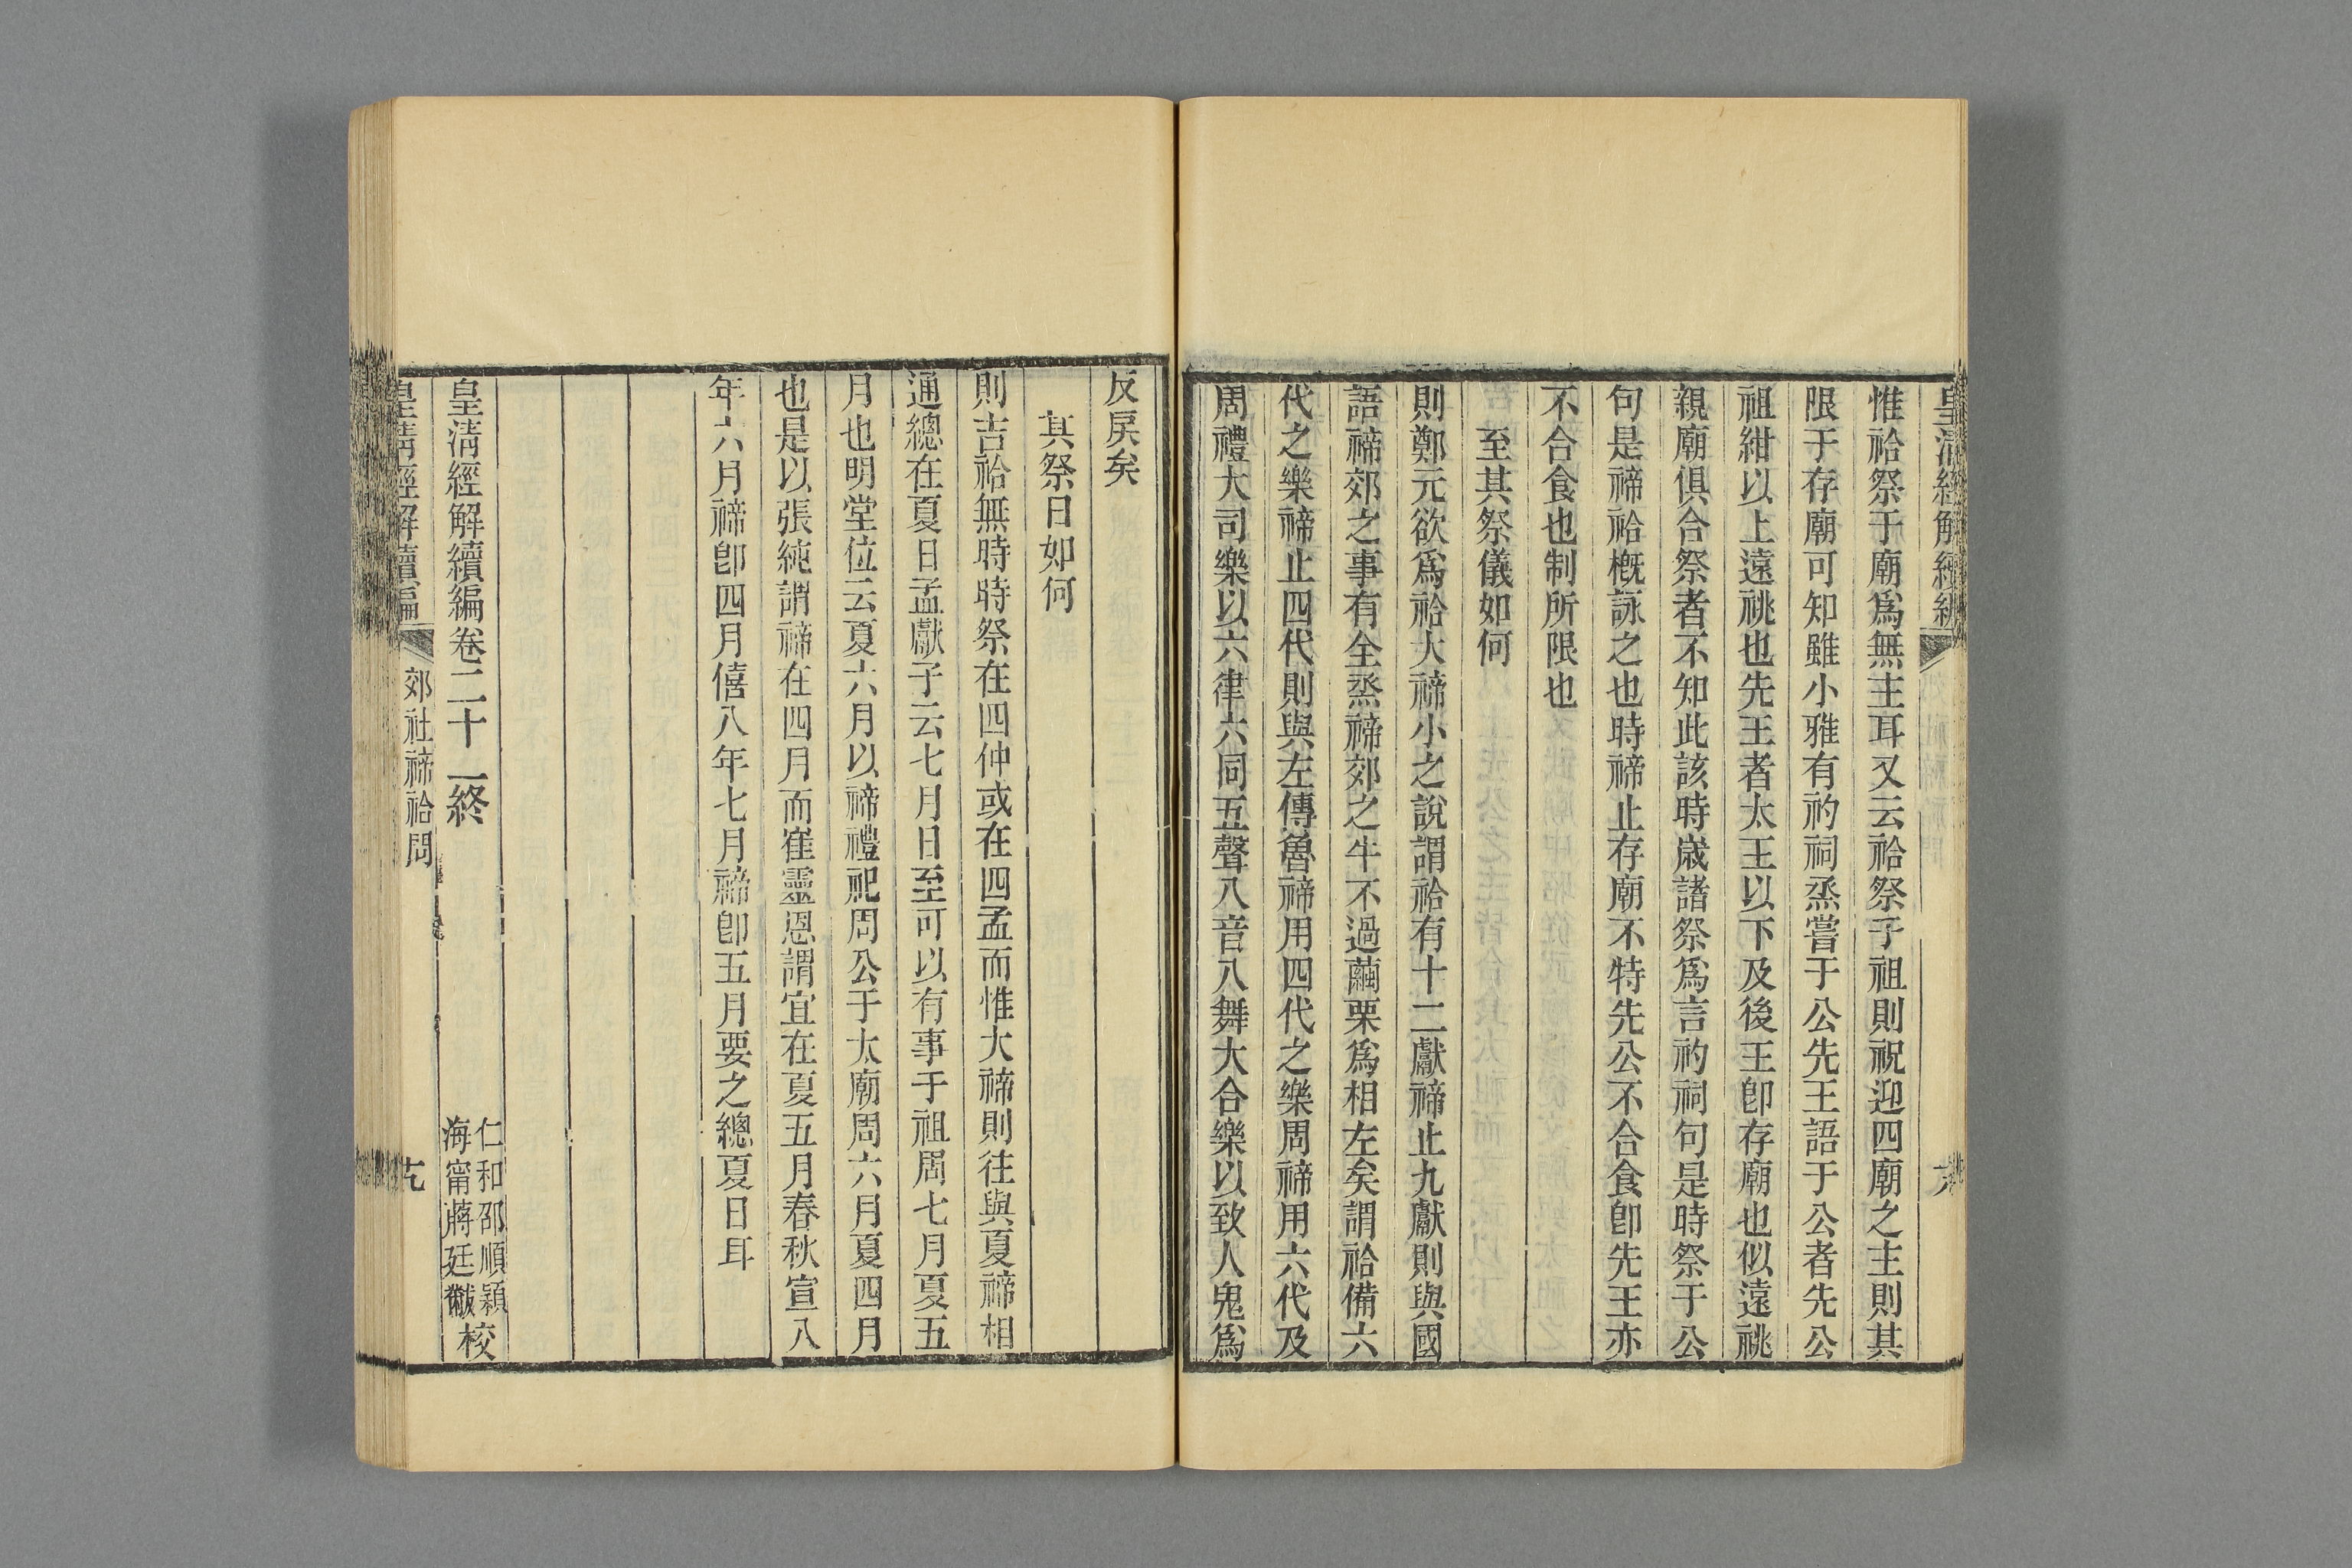 皇清經解續編
惟祫祭于廟爲無主耳又云祫祭于祖則祝迎四廟之主則其
限于存廟可知雖小雅有礿祠烝嘗于公先王語于公者先公
祖紺以上遠祧也先王者太王以下及後王卽存廟也似遠祧
親廟俱合祭者不知此該時歲諸祭爲言礿祠句是時祭于公
句是禘祫槪詠之也時禘止存廟不特先公不合食卽先王亦
不合食也制所限也
至其祭儀如何
則鄭元欲爲祫大禘小之說謂祫有十二獻禘止九獻則與國
語禘郊之事有全烝禘郊之牛不過繭栗爲相左矣謂祫備六
代之樂禘止四代則與左傳魯禘用四代之樂周禘用六代及
周禮大司樂以六律六同五聲八音八舞大合樂以致人鬼爲
反戾矣
其祭日如何
則吉祫無時時祭在四仲或在四孟而惟大禘則往與夏禘相
通總在夏日孟獻子云七月日至可以有事于祖周七月夏五
月也明堂位云夏六月以禘禮祀周公于太廟周六月夏四月
也是以張純謂禘在四月而崔靈恩謂宜在夏五月春秋宣八
年六月禘卽四月僖八年七月禘卽五月要之總夏日耳
皇清經解續編卷二十一終
仁和邵順穎
海甯蔣廷黻
校
皇清經解續編
郊社禘祫問